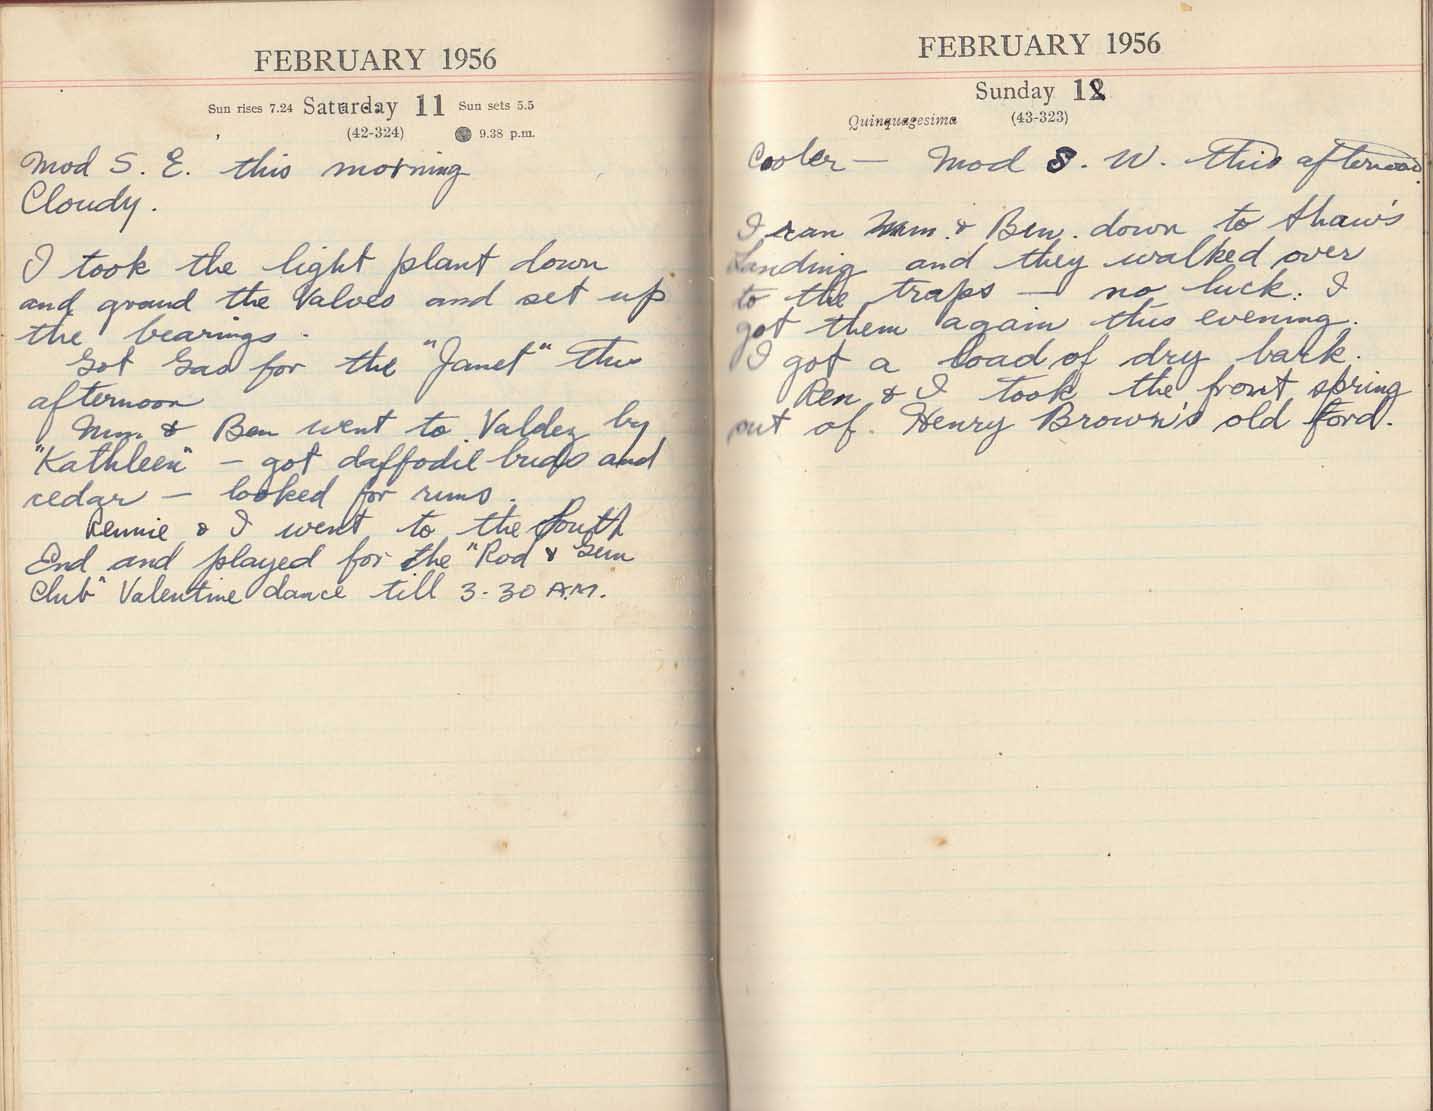 FEBRUARY 1956
Sun rises 7.24 Saturday 11 Sun sets 5.5
(42-324) 9.38 p.m.
Mod S. E. this morning
Cloudy.
I took the light plant down
and ground the Valves and set up
the bearings.
Got Gas for the "Janet" this
afternoon
& Ben went to Valdez by
"Kathleen" - got daffodil buds and
cedar - looked for runs.
Rennie & I went to the South
End and played for the "Rod & Gun
Club" Valentine dance till 3-30 A.M.
FEBRUARY 1956
Sunday 12
Quinquagesima (43-323)
Cooler - Mod S. W. this afternoon.
I ran & Ben. down to Shaw's
Landing and they walked over
to the traps - no luck. I
got them again this evening.
I got a load of dry bark.
Ren & I took the front spring
out of Henry Brown's old Ford.